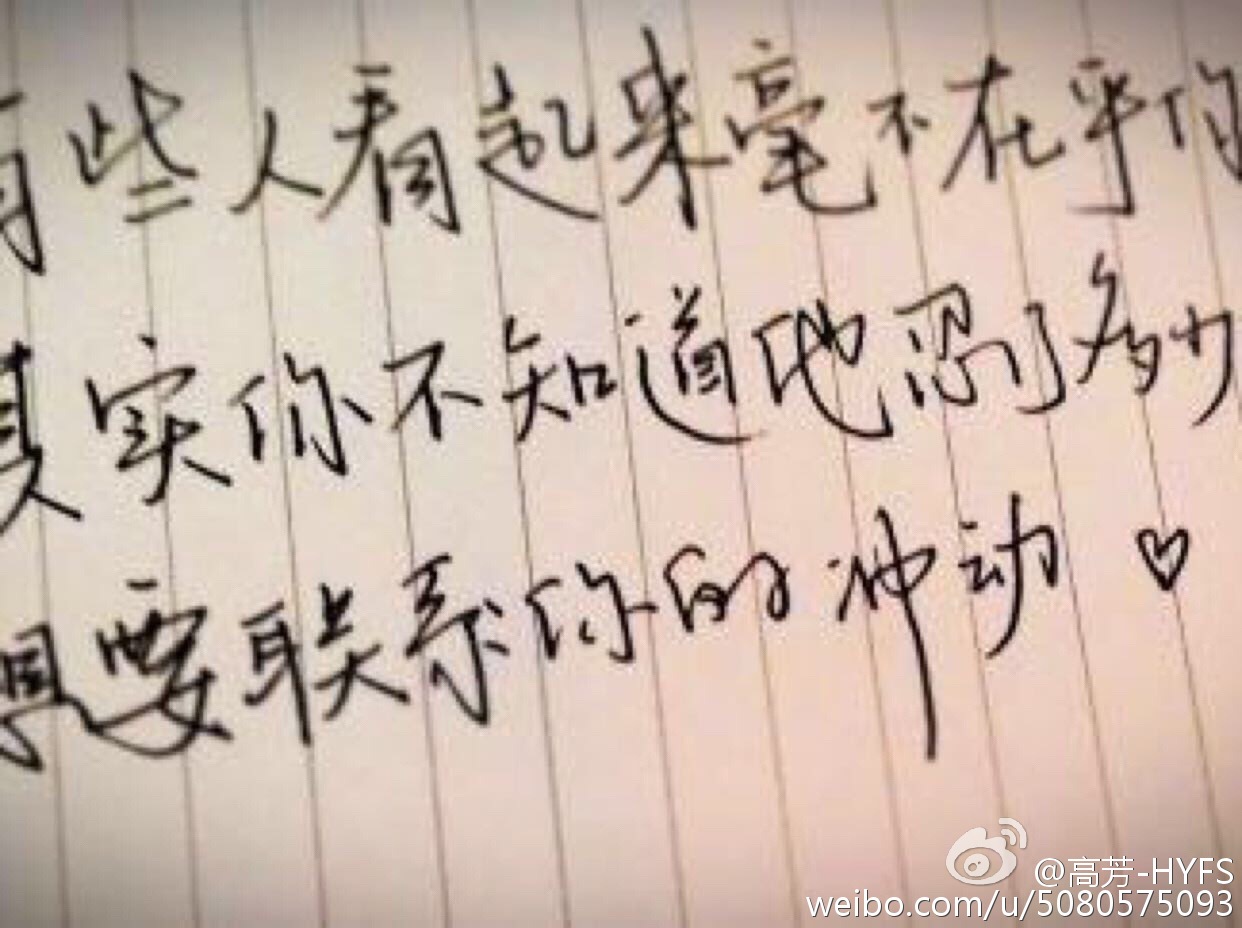 有些人看起来毫不在乎你
其实你不知道他忍了多少
想要联系你的冲动♡
@高芳-HYFS
weibo.com/u/5080575093